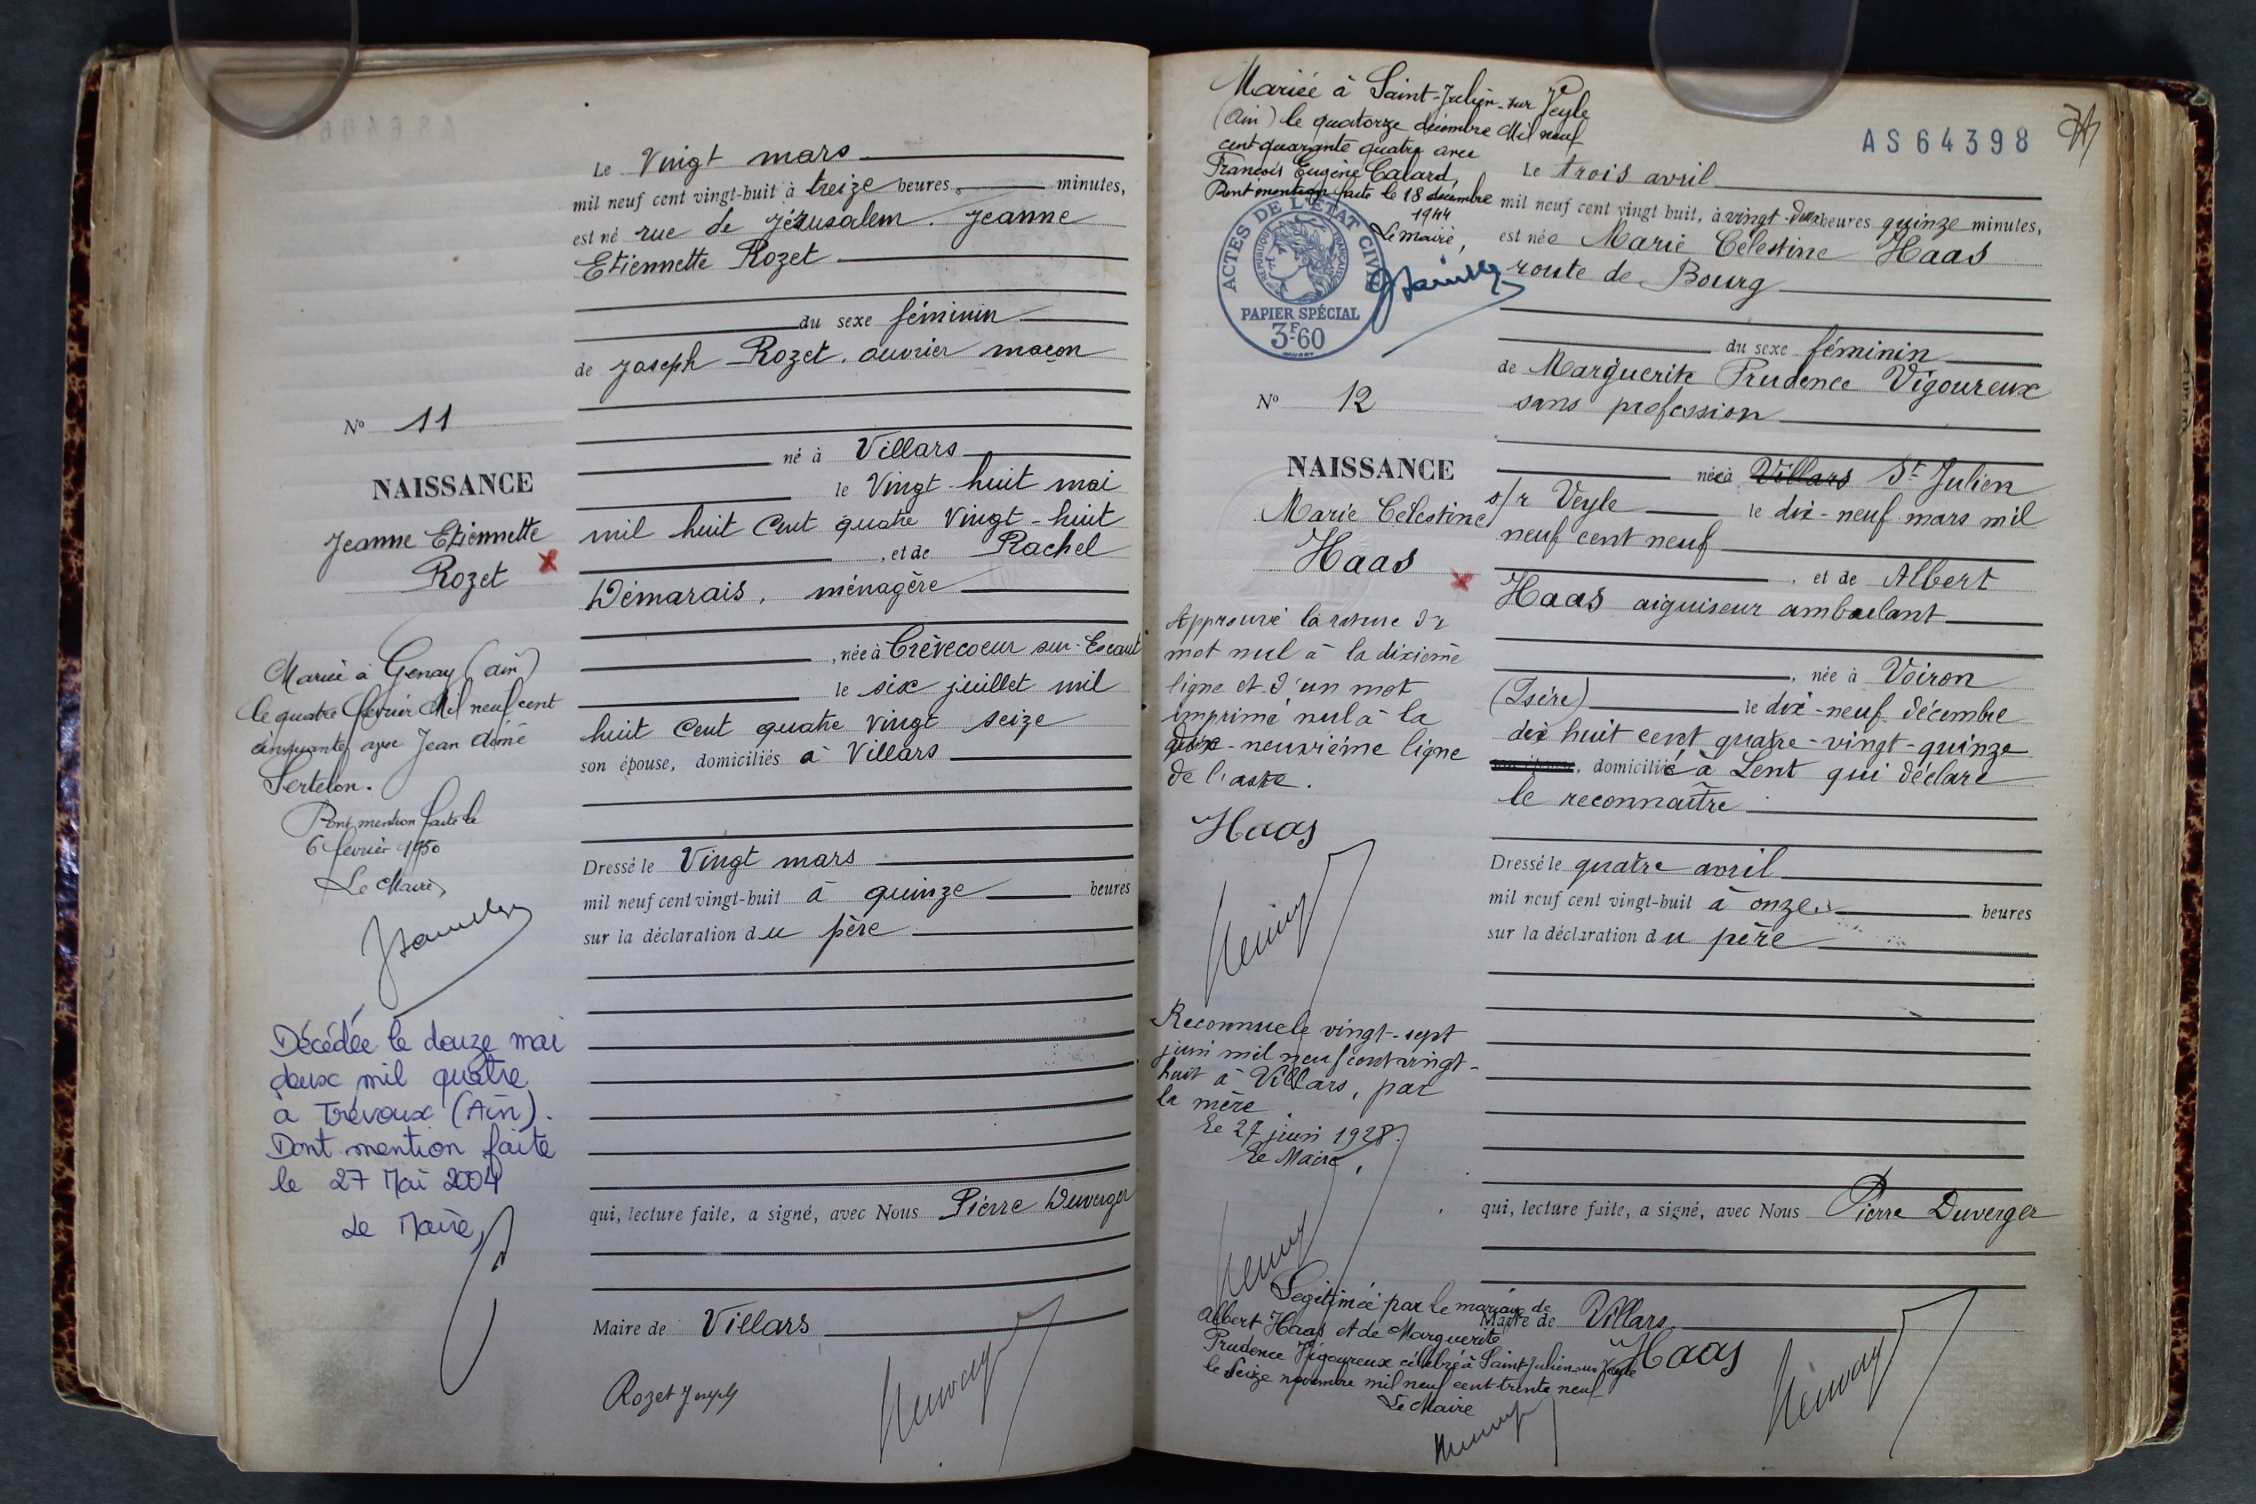 Le Vingt mars
mil neuf cent vingt-huit à treize heures, minutes,
est né rue de Jérusalem. Jeanne
Etiennette Rozet
du sexe féminin
de Joseph Rozet. ouvrier maçon
né à Villars
le Vingt-huit mai
mil huit Cent quatre Vingt-huit
, et de Rachel
Démarais, ménagère
, née à Crèvecoeur sur-Escaut
le six juillet mil
huit Cent quatre Vingt seize
son épouse, domiciliés à Villars
Dressé le Vingt mars
mil neuf cent vingt-huit à quinze heures
sur la déclaration du père
qui, lecture faite, a signé, avec Nous Pierre Duverger
Maire de Villars
Rozet Joseph
No 11
NAISSANCE
Jeanne Etiennette
Rozet
Mariée à Genay (Ain)
le quatre février Mil neuf cent
cinquante avec Jean Aimé
Sertelon.
Dont mention faite le
6 février 1950
Le Maire,
Décédée le douze mai
deux mil quatre
à Trévoux (Ain).
Dont mention faite
le 27 Mai 2004
Le Maire,
Mariée à Saint-Julien-sur Veyle
(Ain) le quatorze décembre Mil neuf
cent quarante quatre avec
François Eugène Calard,
Dont mention faite le 18 décembre
1944
Le maire,
ACTES DE L'ETAT CIVIL
REPUBLIQUE FRANÇAISE
PAPIER SPÉCIAL
3F60
AS64398
Le trois avril
mil neuf cent vingt huit, à vingt-deux heures quinze minutes,
est née Marie Célestine Haas
route de Bourg
du sexe féminin
de Marguerite Prudence Vigoureux
sans profession
née à Villars St Julien
s/r Veyle le dix-neuf mars mil
neuf cent neuf
, et de Albert
Haas aiguiseur ambulant
, née à Voiron
(Isère) le dix-neuf décembre
dix huit cent quatre-vingt-quinze
, domicilié à Lent qui déclare
le reconnaître
Dressé le quatre avril
mil neuf cent vingt-huit à onze heures
sur la déclaration du père
qui, lecture faite, a signé, avec Nous Pierre Duverger
Maire de Villars
Haas
No 12
NAISSANCE
Marie Célestine
Haas
Approuvé la rature d'
mot nul à la dixième
ligne et d'un mot
imprimé nul à la
dix-neuvième ligne
de l'acte.
Haas
Reconnue le vingt-sept
juin mil neuf cent vingt-
huit à Villars, par
la mère
Le 27 juin 1928.
Le Maire,
Légitimée par le mariage de
Albert Haas et de Marguerite
Prudence Vigoureux célébré à Saint Julien sur Veyle
le seize novembre mil neuf cent trente neuf
Le Maire